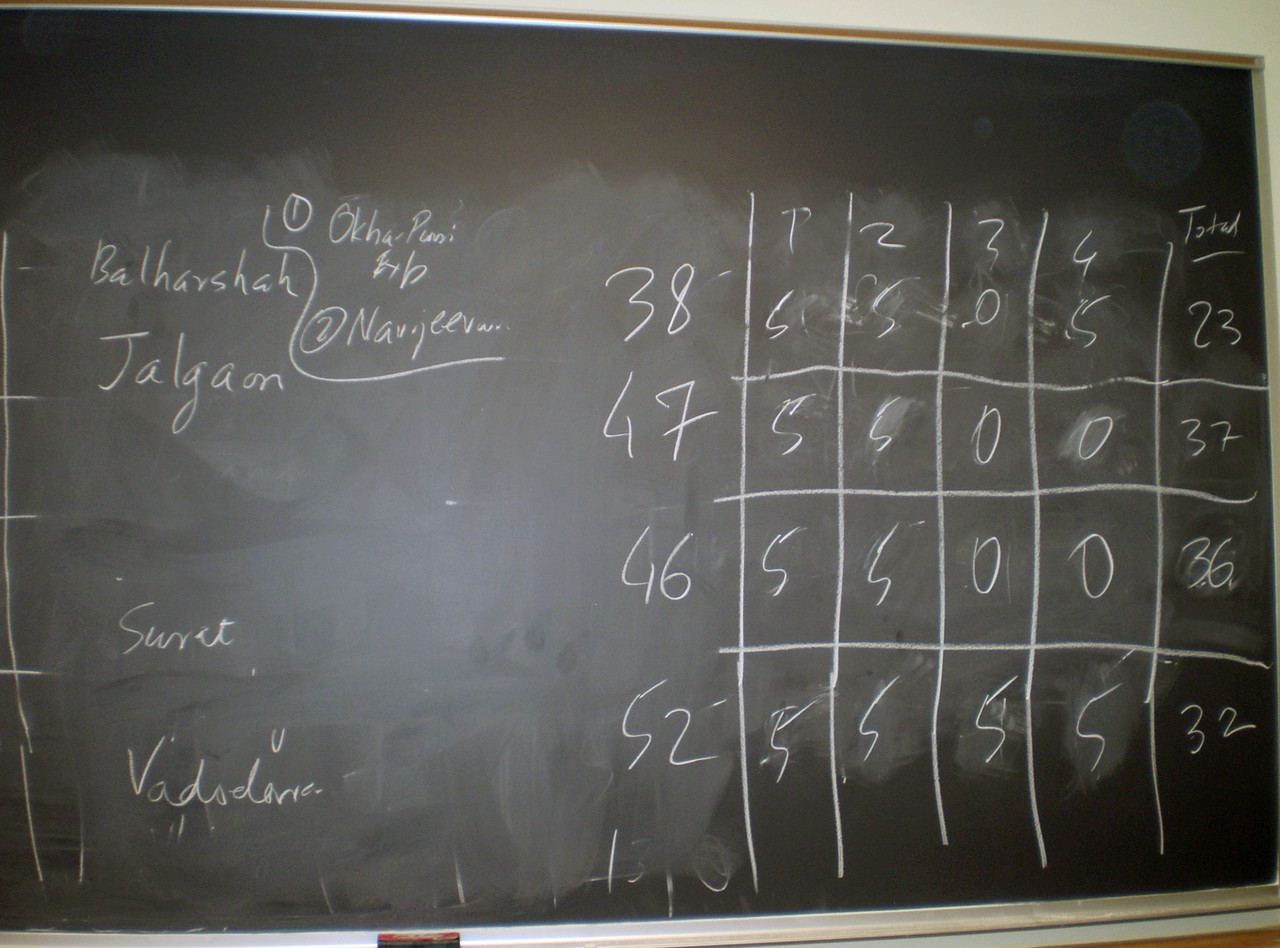 ① Okha-Puri
Exp
Balharshah
② Navjeevan
Jalgaon
Surat
Vadodara
1 2 3 4 Total
38 5 5 0 5 23
47 5 5 0 0 37
46 5 5 0 0 36
52 5 5 5 5 32